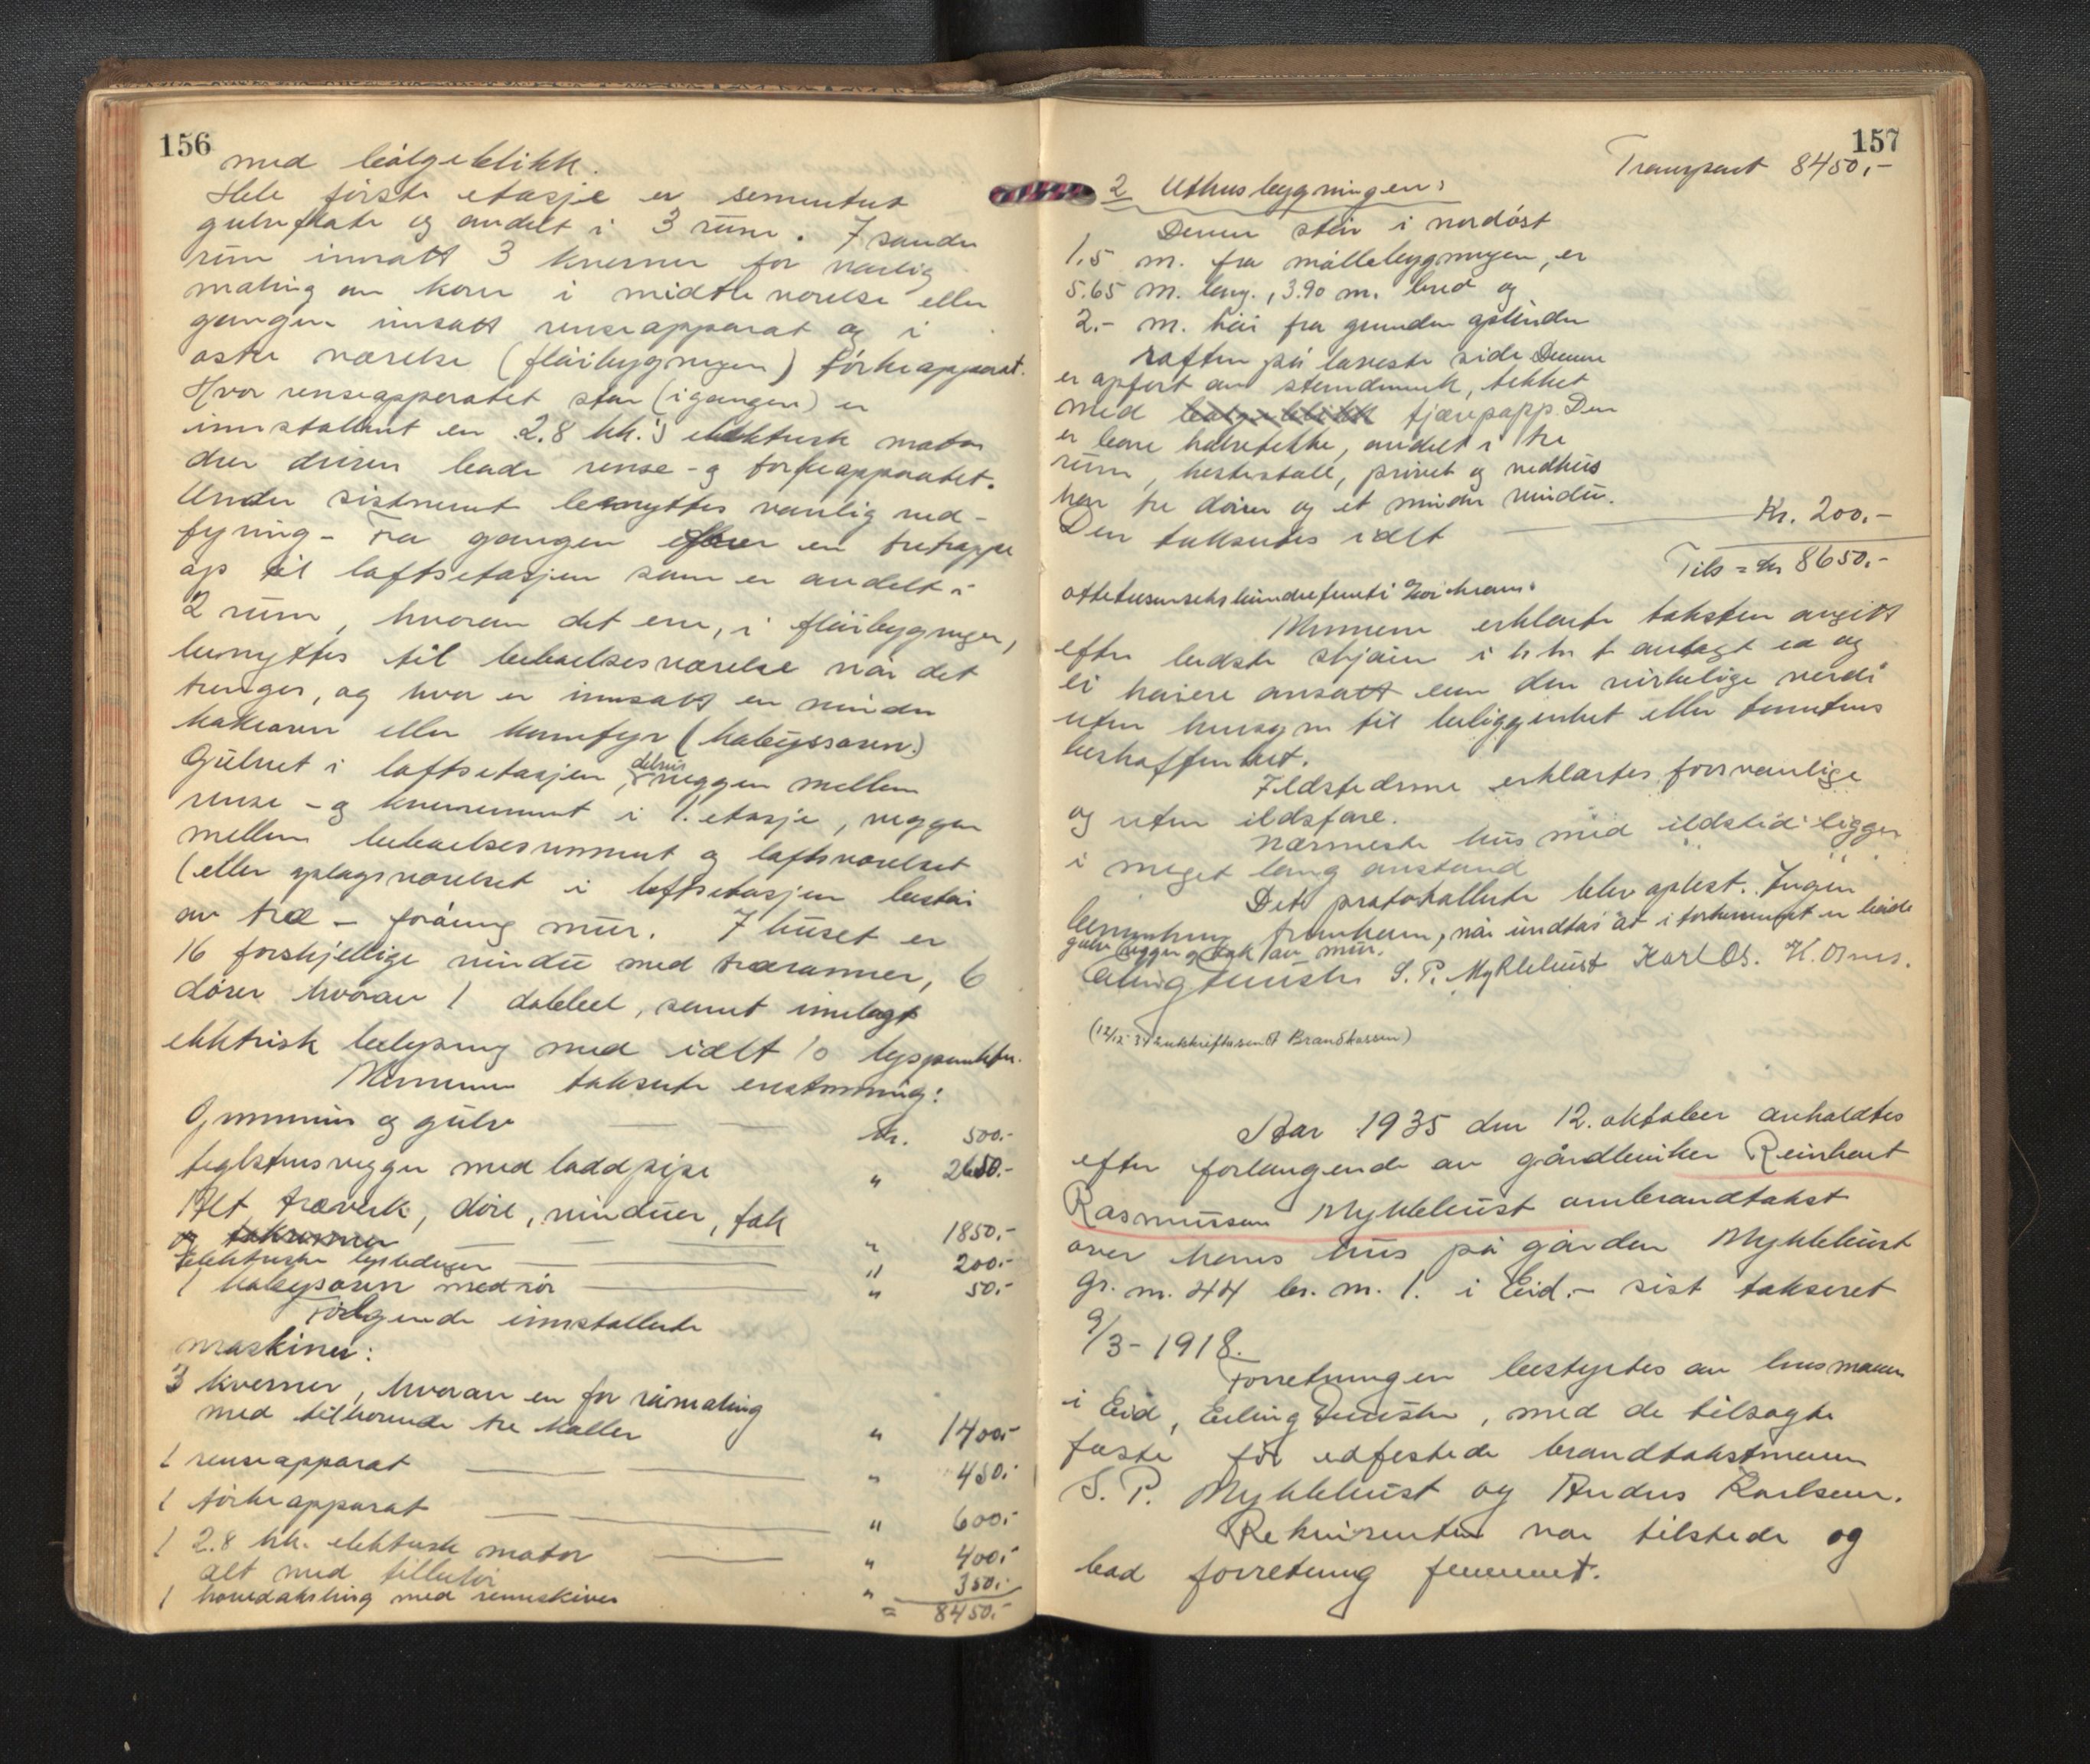 156
med bølgeblikk.
Hele første etasje er sementert
gulvflate og avdelt i 3 rum. I søndre
rum innsatt 3 kverner for vanlig
maling av korn i midtre værelse eller
gangen innsatt renseapparat og i
østre værelse (flåibygningen) tørkeapparat.
Hvor renseapparatet står (i gangen) er
innstallert en 2.8 hk.'s elektrisk motor
der driver både rense- og tørkeapparatet.
Under sistnevnt benyttes vanlig ved-
fyring - Fra gangen fører en tretrappe
op til loftsetasjen som er avdelt i
2 rum, hvorav det ene, i flåibygningen,
benyttes til beboelsesværelse når det
trenges, og hvor er innsatt en mindre
kakeovn eller komfyr (kabyssovn.)
Gulvet i loftsetasjen, delvis veggen mellem
rense- og kvernrummet i 1. etasje, veggen
mellem beboelsesrummet og loftsværelset
(eller oplagsværelset i loftsetasjen består
av træ - forøvrig mur. I huset er
16 forskjellige vindu med trærammer, 6
dører hvorav 1 dobbel, samt innlagt
elektrisk belysning med ialt 10 lyspunkter.
Mennene takserte enstemmig:
Grunnmur og gulv kr. 500.-
teglstensvegger med loddpipe " 2650.-
Alt træverk, døre, vinduer, tak
og takrenner " 1850.-
Elektriske lysledninger " 200.-
1 kabysovn med rør " 50.-
Følgende innstallerte
maskiner:
3 kverner, hvorav en for råmaling
med tilhørende tre kaller " 1400.-
1 renseapparat " 450.-
1 tørkeapparat " 600.-
1 2.8 hk. elektrisk motor " 400.-
alt med tilbehør
1 hovedaksling med remskiver " 350.-
= 8450.-
157
Transport 8450.-
2 Uthusbygningen:
Denne står i nordøst
1.5 m. fra møllebygningen, er
5.65 m. lang., 3.90 m. bred og
2.- m. høi fra grunden opunder
raften på laveste side Denne
er opført av stendverk, tekket
med bølgeblikk tjærepapp. Den
er bare halvtekke, avdelt i tre
rum, hestestall, privet og vedhus
har tre dører og et mindre vindu.
Den takseres ialt Kr. 200.-
Tils = kr 8650.-
ottetusenseks hundrefemti kroner.
Mennene erklærte taksten avgitt
efter bedste skjønn i h. h. t. avlagt ed og
ei høiere ansatt enn den virkelige verdi
uten hensyn til beliggenhet eller tomtens
beskaffenhet.
Ildstederne erklærtes forsvarlige
og uten ildsfare.
Nærmeste hus med ildsted ligger
i meget lang avstand
Det protokollerte blev oplest. Ingen
bemerkning fremkom, når undtas at i tørkerummet er både
gulv vegger og tak av mur.
Erling Fuuster S. P. Myklebust Karl Os. H. Osnes.
(12/12 34 utskrift sendt Brandkassen)
Aar 1935 den 12. oktober avholdtes
efter forlangende av gårdbruker Reinhart
Rasmussen Myklebust ombrandtakst
over hans hus på gården Myklebust
gr. nr. 44 br. nr. 1. i Eid. - sist taksert
9/3 - 1918.
Forretningen bestyrtes av lensmann
i Eid, Erling Fuuster, med de tilsagte
faste før edfestede brandtakstmenn
S. P. Myklebust og Anders Karlsen.
Rekvirenten var tilstede og
bad forretning fremmet.